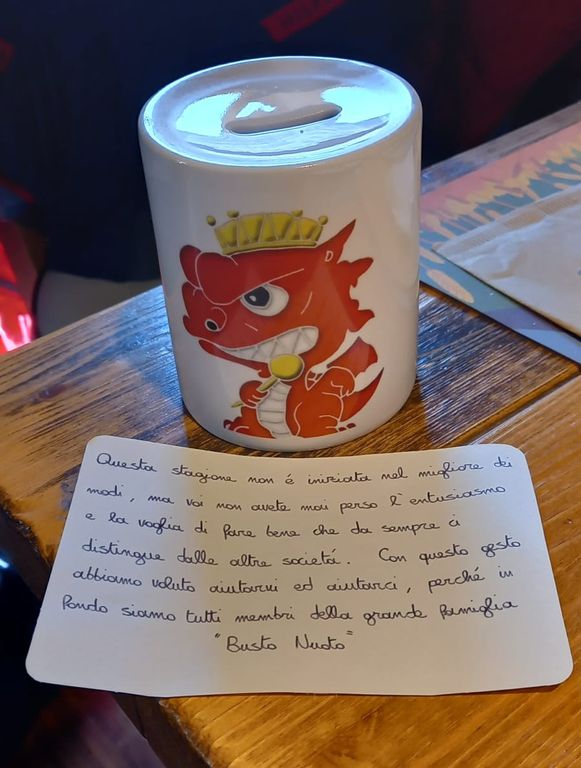 Questa stagione non é iniziata nel migliore dei
modi, ma voi non avete mai perso l'entusiasmo
e la voglia di fare bene che da sempre ci
distingue dalle altre societá. Con questo gesto
abbiamo voluto aiutarvi ed aiutarci, perché in
fondo siamo tutti membri della grande famiglia
"Busto Nuoto"